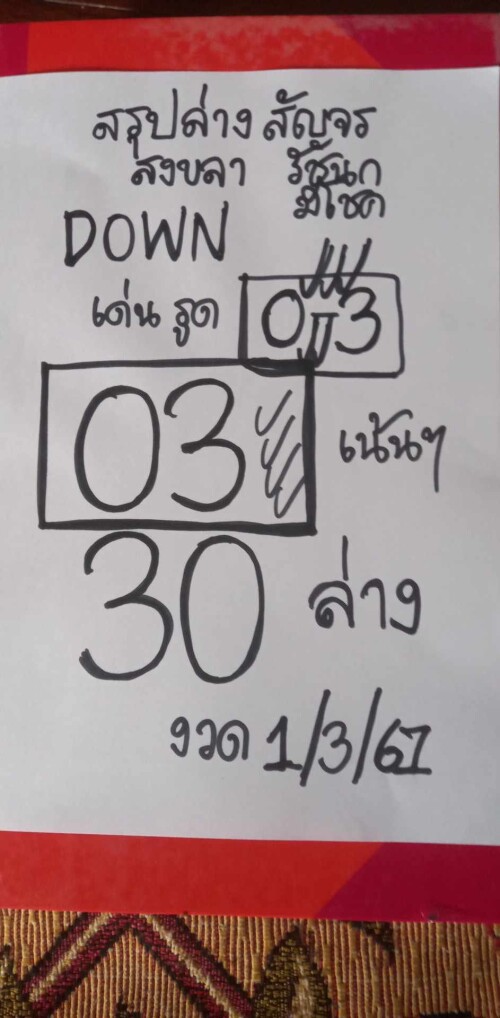 สรุปล่าง สัญจร
สงขลา รัชนก
มีโชค
DOWN
เด่น รูด 0 3
03 เน้นๆ
30 ล่าง
งวด 1/3/67